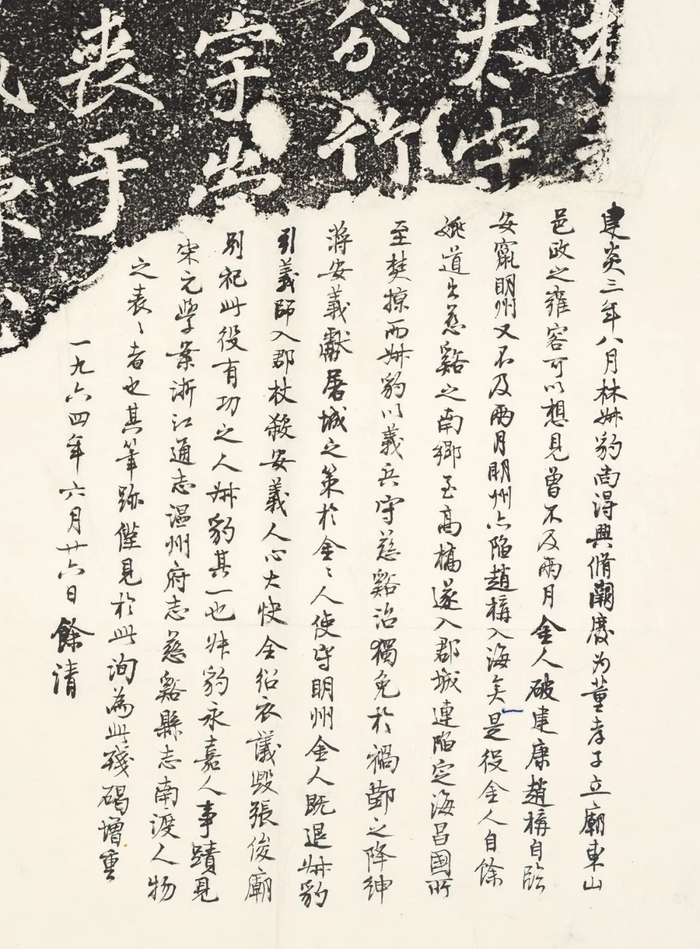 太守
分竹
宇出
喪于
建炎三年八月林叔豹尚得典脩廟慶为董孝子立廟東山
邑政之雍容可以想見曾不及兩月金人破建康趙構自臨
安竄明州又不及兩月明州亦陷趙構入海矣是役金人自餘
姚道出慈谿之南鄉至高橋遂入郡城連陷定海昌國所
至焚掠而叔豹以義兵守慈谿治獨免於禍鄞之降紳
蔣安義獻屠城之策於金〻人使守明州金人既退叔豹
引義師入郡杖殺安義人心大快全紹衣議毀張俊廟
别祀此役有功之人叔豹其一也叔豹永嘉人事蹟見
宋元學案浙江通志温州府志慈谿縣志南渡人物
之表〻者也其筆跡僅見於此洵為此殘碣增重
一九六四年六月廿六日餘清